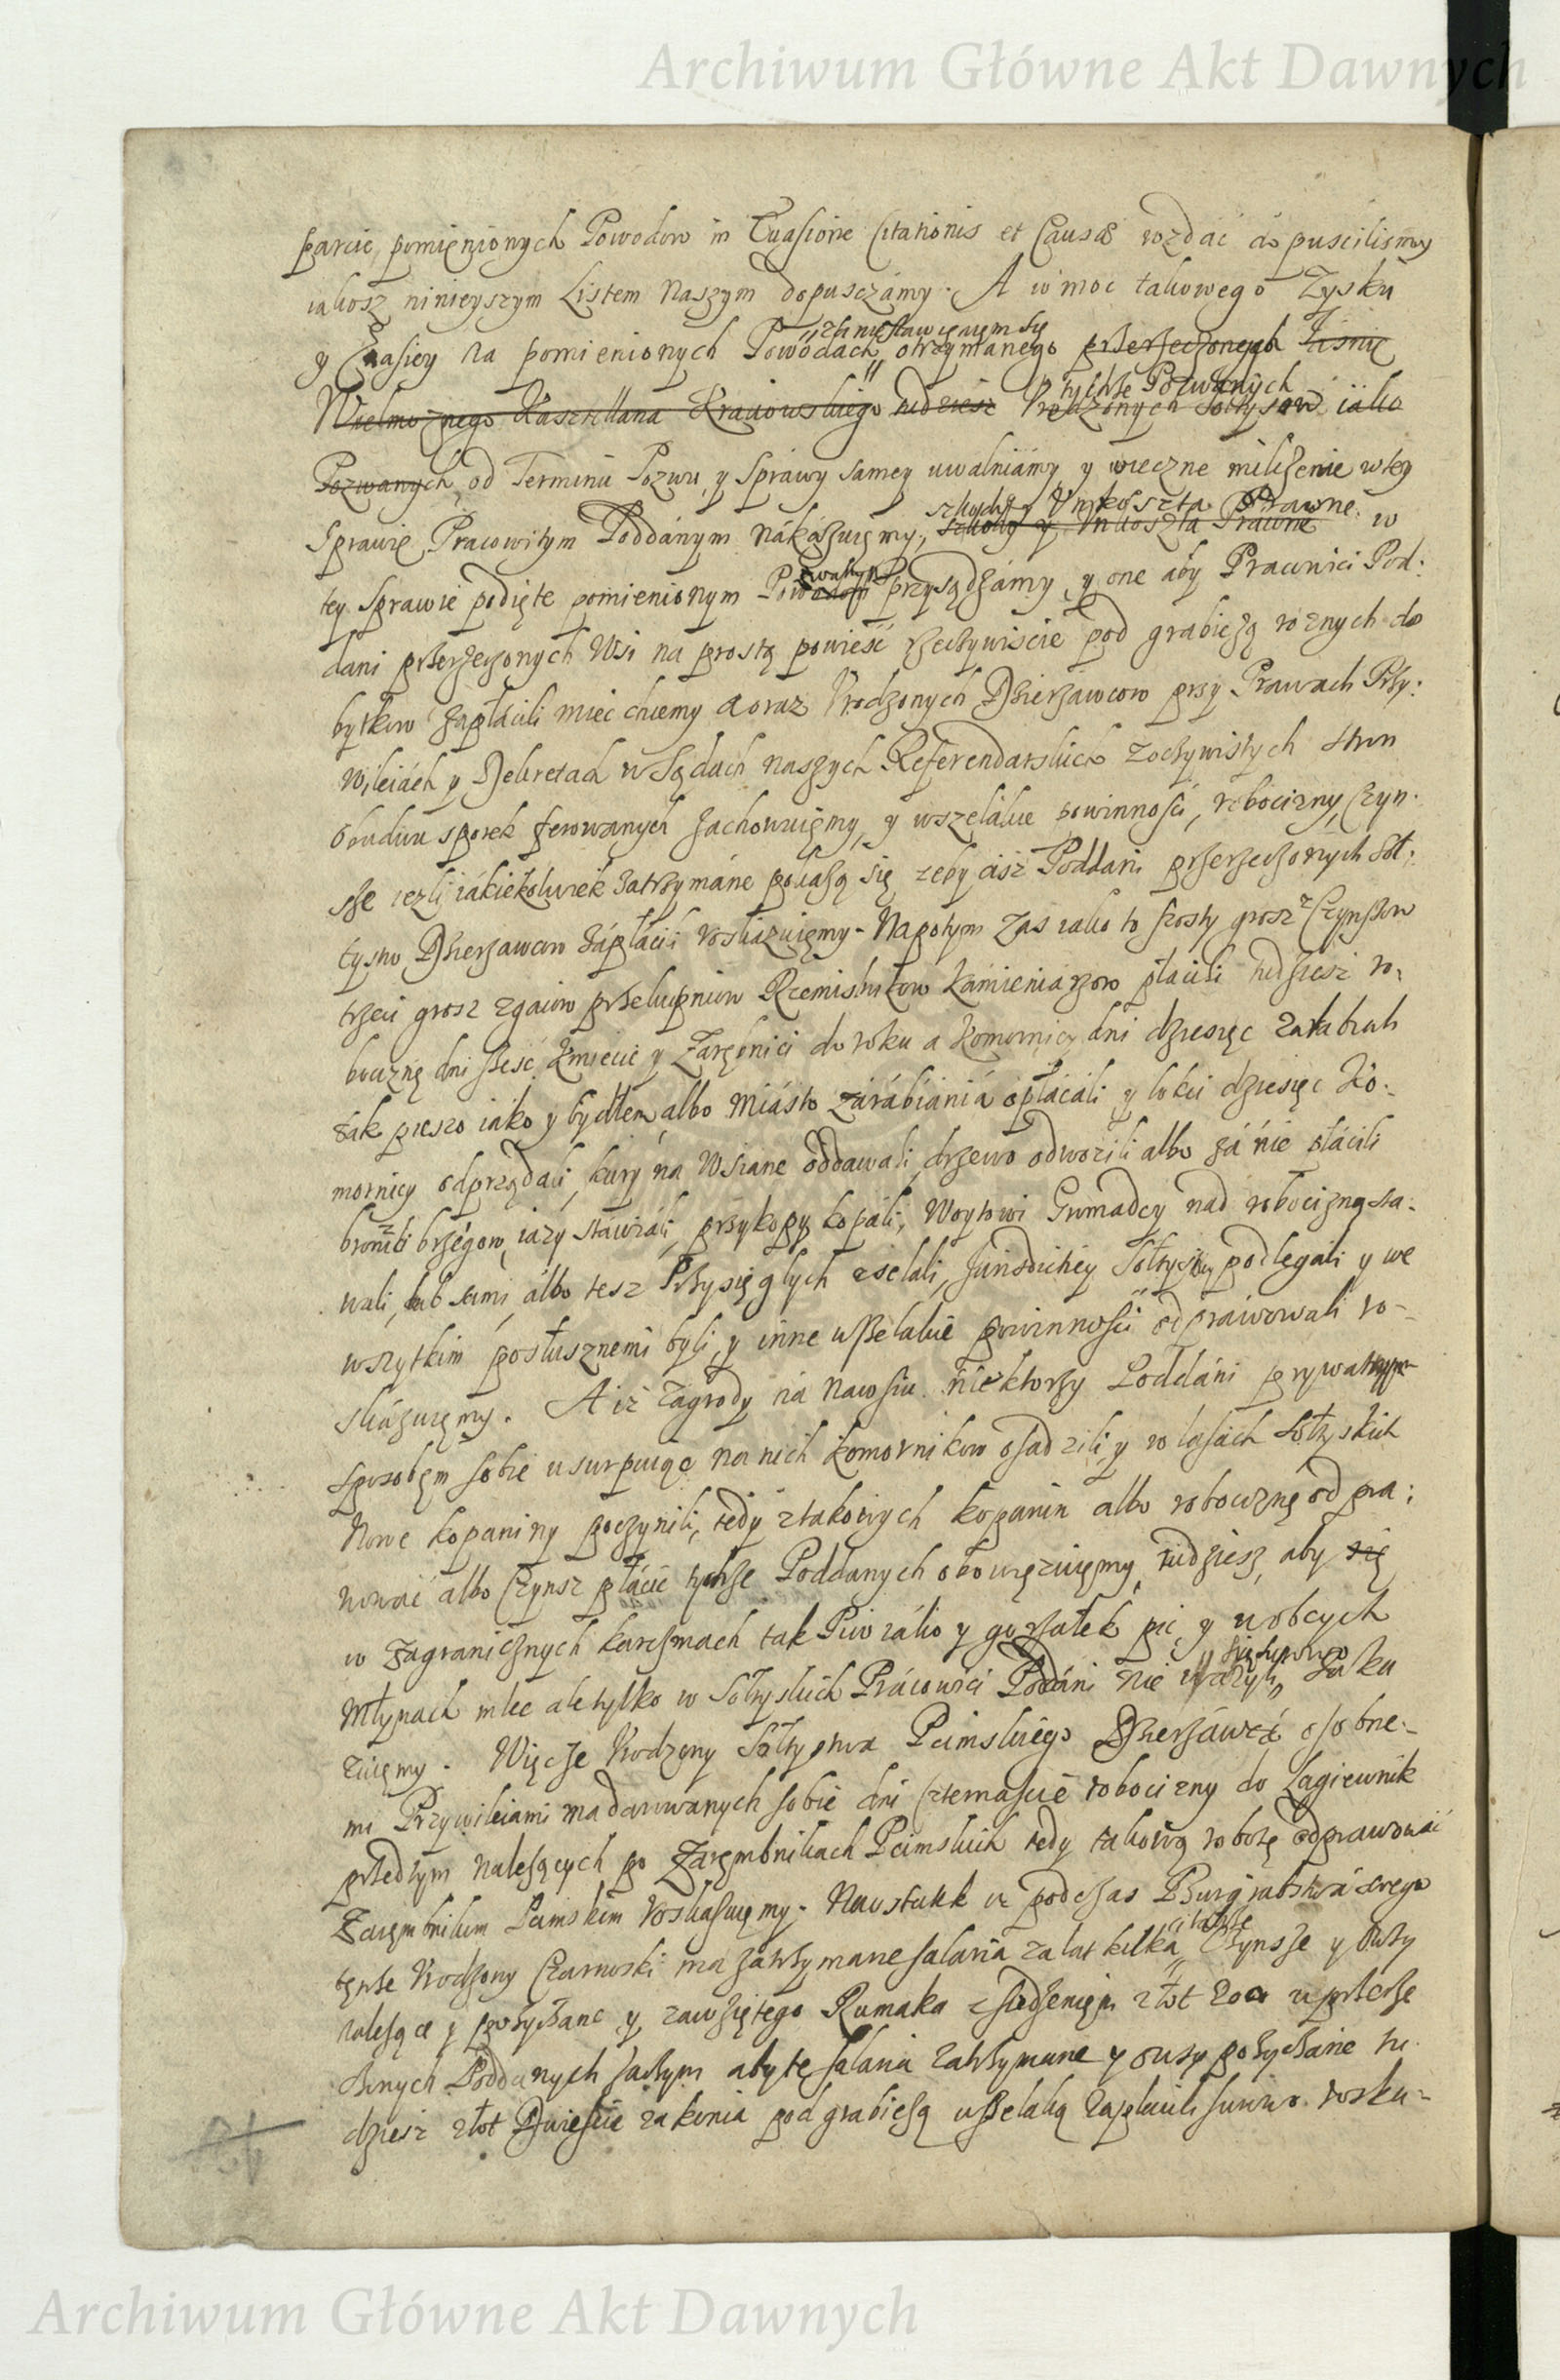 Archiwum Główne Akt Dawnych
parcie, pomienionych Powodow in Evasione Citationis et Causæ wzdać dopuscilismy
iakosz ninieyszym Listem Naszym dopusczámy. A w moc takowego Zysku
y Ewasiey na pomienionych Powodach, zle niestawiącym się otrzymanego przerzeczonego Jasnie
Wielmoznego Kasztellana Krakowskiego tudziesz Urodzonych tychże Pozwanych Sołtysow iako
Pozwanych od Terminu Pozwu, y Sprawy samey uwalniámy y wieczne milczenie w tey
Sprawie Pracowitym Poddánym nákázuięmy, szkody y Unkoszta Prawne szkody y Unkoszta Prawne w
tey Sprawie podięte pomienionym Pozwanym przysądzámy, y one aby Pracowici Pod:
dani przerzeczonych Wsi na prostą powieść rzeczywiscie pod grabieżą roznych do
bytkow zapłácili miec chcemy a oraz Urodzonych Dzierżawcow przy Prawach Przy:
wileiách y Dekretach w Sądach naszych Referendarskich zoczywistych stron
obudwu sporek ferowanych zachowuięmy, y wszelákie powinności, robocizny, Czyn:
sze iezli iákiekolwiek zatrzymáne pokażą się żeby ciż Poddani przerzeczonych Soł:
tystw Dzierżawcom zápłácili roskázuięmy. Napotym zas iako to szosty grosz Czynszow
trzeci grosz zgaiow przekupniow Rzemisłnikow kámieniarzow płacili tudziesz ro:
bociznę dni sześć Kmiecie y Zarębnici do roku a Komornicy dni dziesięc zarabiali
tak pieszo iako y bydłem albo miásto zárábiániá opłácáli y łokci dziesięc Ko:
mornicy odprzędali, kury na Wsiane oddawali, drzewo odwozili albo zá nie płácili
bronili brzegow, iazy stawiáli, przykopy kopáli, Woytowi Gromadcy nad robocizną sta:
wali, lub sami, álbo tesz Przysięgłych zsełali, Jurisdictiey Sołtysiey podlegáli y we
wszytkim posłusznemi byli, y inne wszelakie powinności odprawowali ro:
skázuięmy. A iż zagrody na Nawsiu niektorzy Poddáni prywatnym
sposobęm sobie usurpuiąc na nich komornikow osadzili, y w lasách Sołtyskich
Nowe kopaniny poczynili, tedy z takowych kopanin albo robociznę odpra:
wować albo Czynsz płácić tychże Poddanych obowięzuięmy, tudziesz, aby się
w zagranicznych karczmach tak Piwo iáko y gorzałek pić, y w obcych
Młynach mlec ale tylko w Sołtyskich Prácowici Poddáni nie ważyli, surowo Przyka
zuięmy. Więc że Urodzony Sołtystwa Pcimskiego Dzierżawcá osobne:
mi Przywileiami ma darowanych sobie dni Czternascie robocizny do Łagiewnik
przedtym należących po Zaręmbnikach Pcimskich tedy takową robotę odprawować
Zarębnikom Pcimskim roskazuięmy. Nawstatek iż podczas
tęnże Urodzony Czarnoski ma zatrzymane salaria za lat kilka, Czynsze y Owsy
należące y pożyczane y zawziętego Rumaka z siedzeniem złot 200 u przerze
czonych Poddanych zaczym aby te salaria zatrzymane y owsy pożyczane tu
dziesz złot Dwieście za konia pod grabieżą wszelaką zapłacili surowo roska:
Archiwum Główne Akt Dawnych